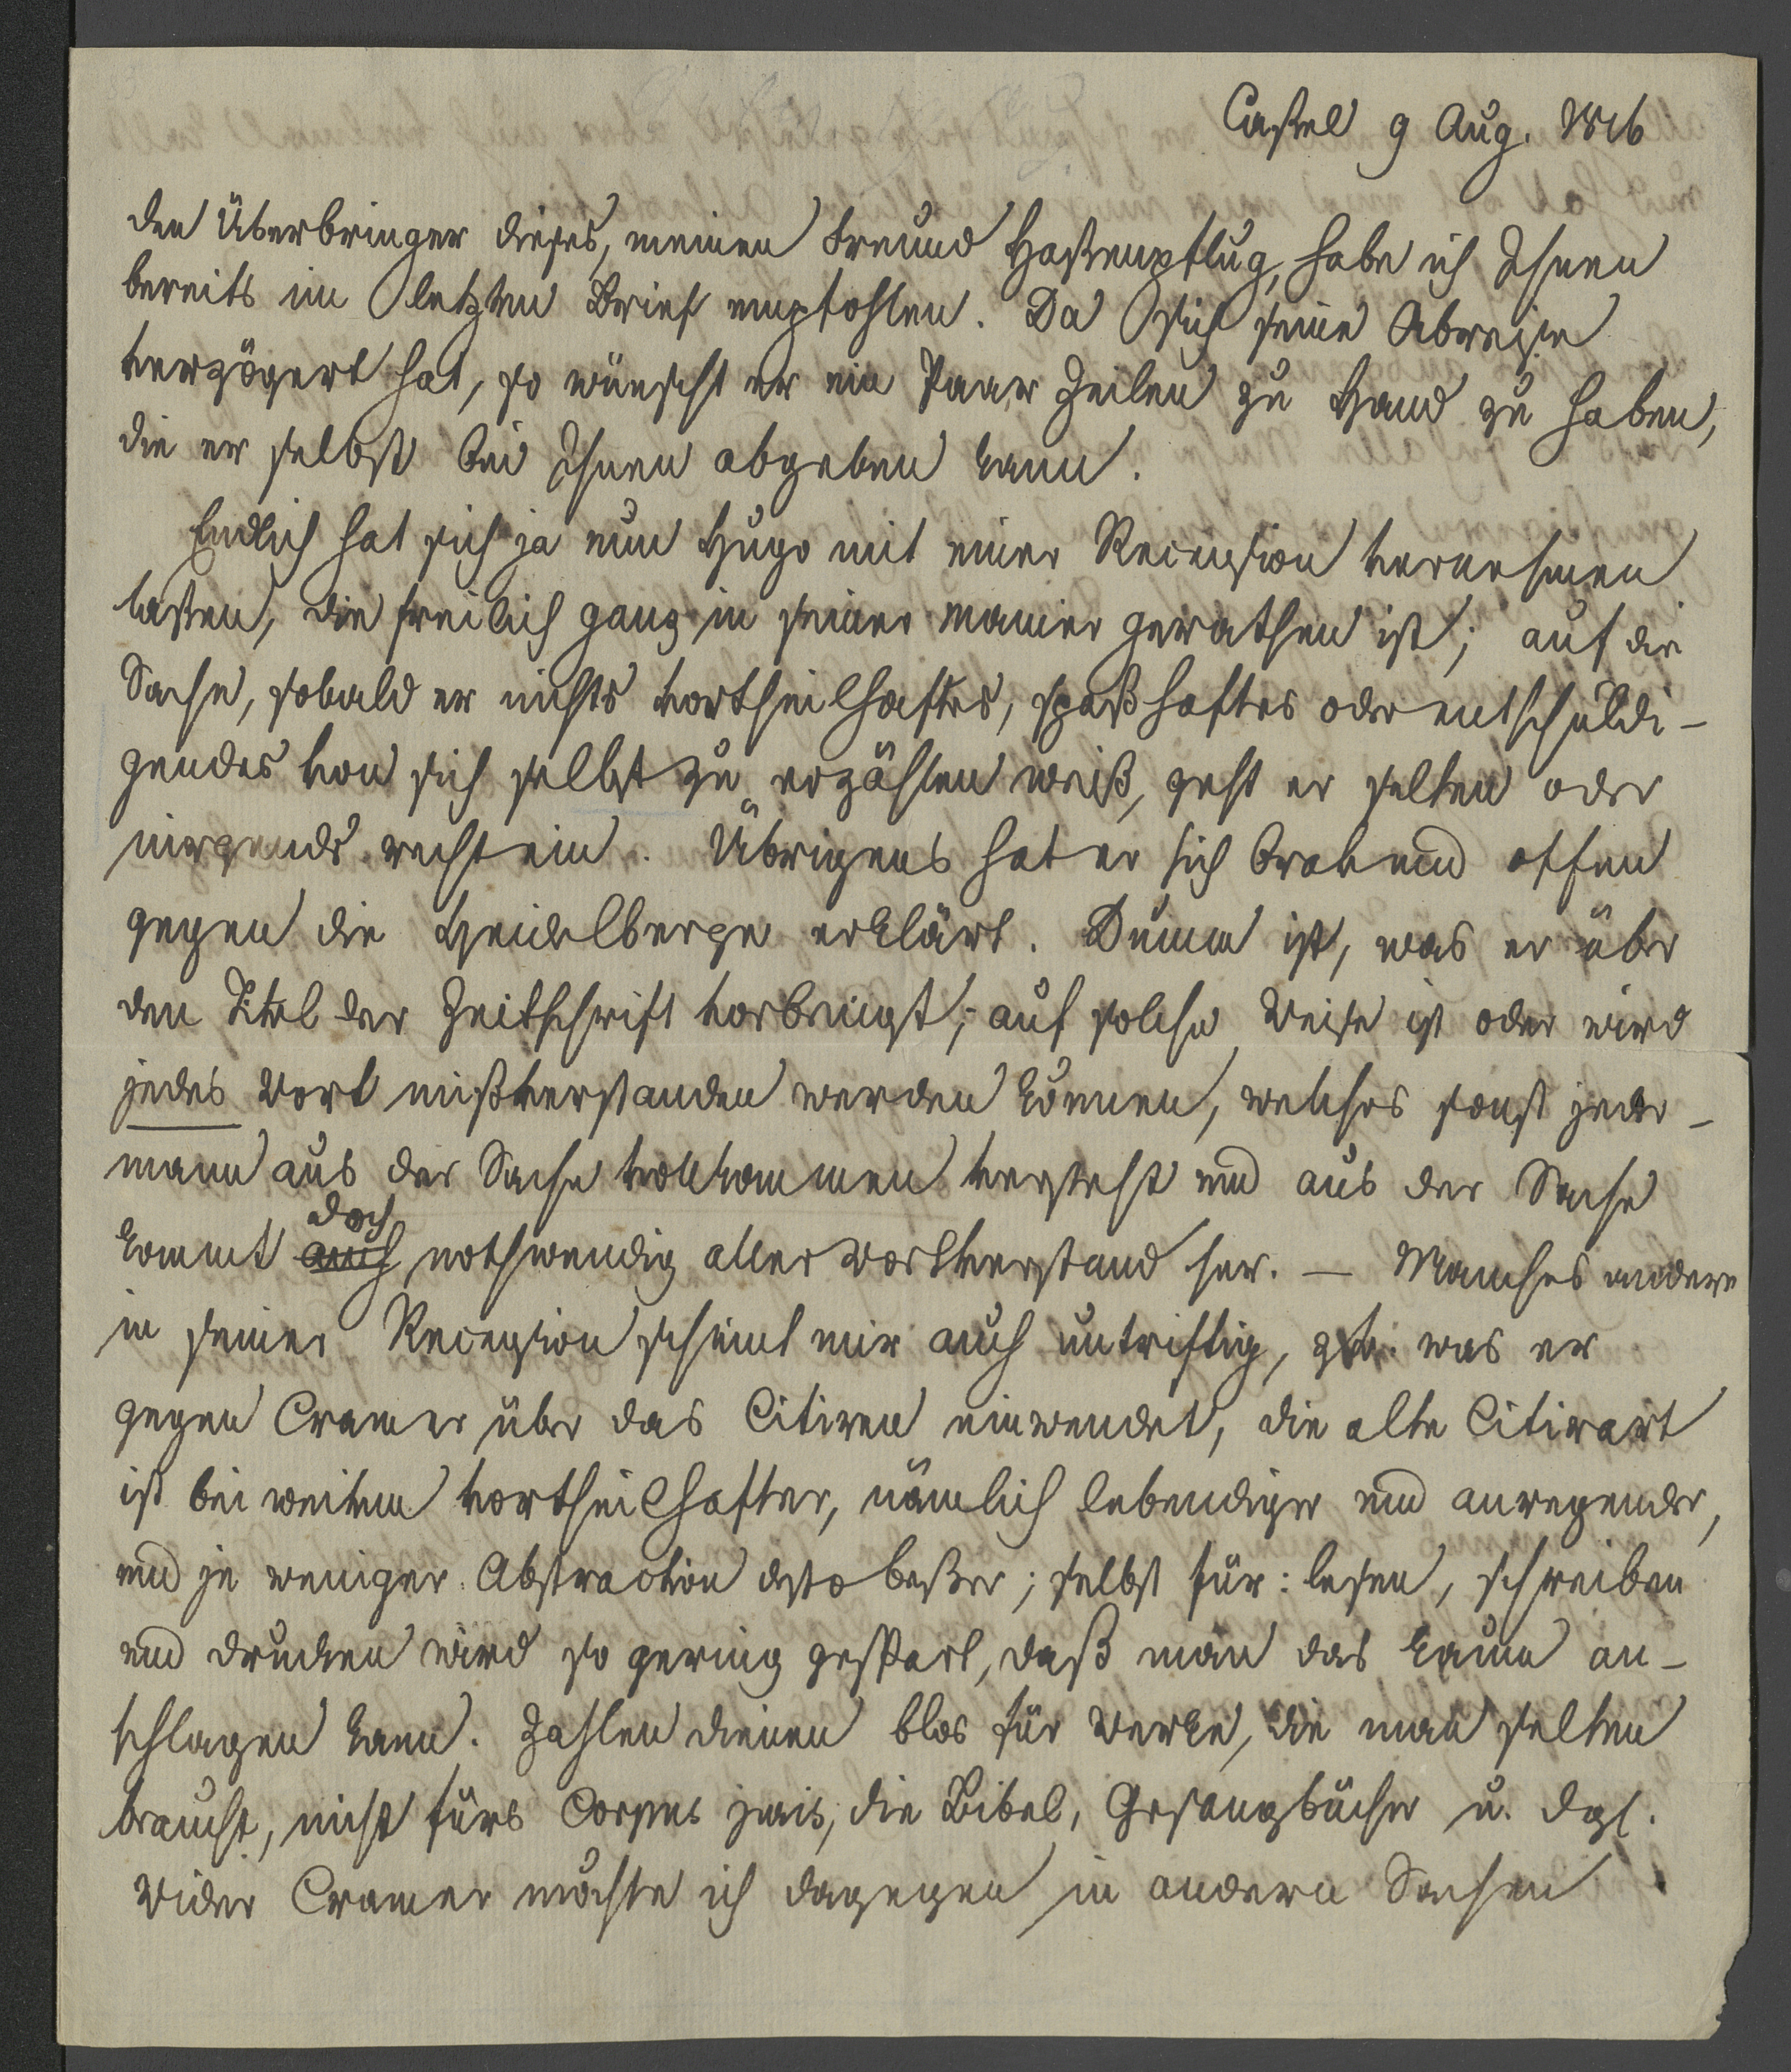 Cassel 9 Aug. 1816
den Überbringer dieses, meinen Freund Hassenpflug, habe ich Ihnen
bereits im letzten Brief empfohlen. Da sich seine Abreise
verzögert hat, so wünscht er ein Paar Zeilen zu Hand zu haben,
die er selbst bei Ihnen abgeben kann.
Endlich hat sich ja nun Hugo mit einer Recension vernehmen
lassen, die freilich ganz in seiner Manier gerathen ist; auf die
Sache, sobald er nichts vortheilhaftes, spaßhaftes oder entschuldi-
gendes von sich selbst zu erzählen weiß, geht er selten oder
nirgends recht ein. Übrigens hat er sich brav und offen
gegen die Heidelberger erklärt. Dumm ist, was er über
den Titel der Zeitschrift vorbringt; auf solche Weise ist oder wird
jedes Wort mißverstanden werden können, welches sonst jeder-
mann aus der Sache vollkommen versteht und aus der Sache
kommt auch doch nothwendig aller Wortverstand her. — Manches andere
in seiner Recension scheint mir auch untriftig, was er
gegen Cramer über das Citiren einwendet, die alte Citirart
ist bei weitem vortheilhafter, nämlich lebendiger und anregender,
und je weniger Abstraction desto besser; selbst für: lesen, schreiben
und drucken wird so gering gespart, daß man das kaum an-
schlagen kann. Zahlen dienen blos für Werke, die man selten
braucht, nicht fürs Corpus juris, die Bibel, Gesangbücher u. dgl.
Wider Cramer möchte ich dagegen in andern Sachen